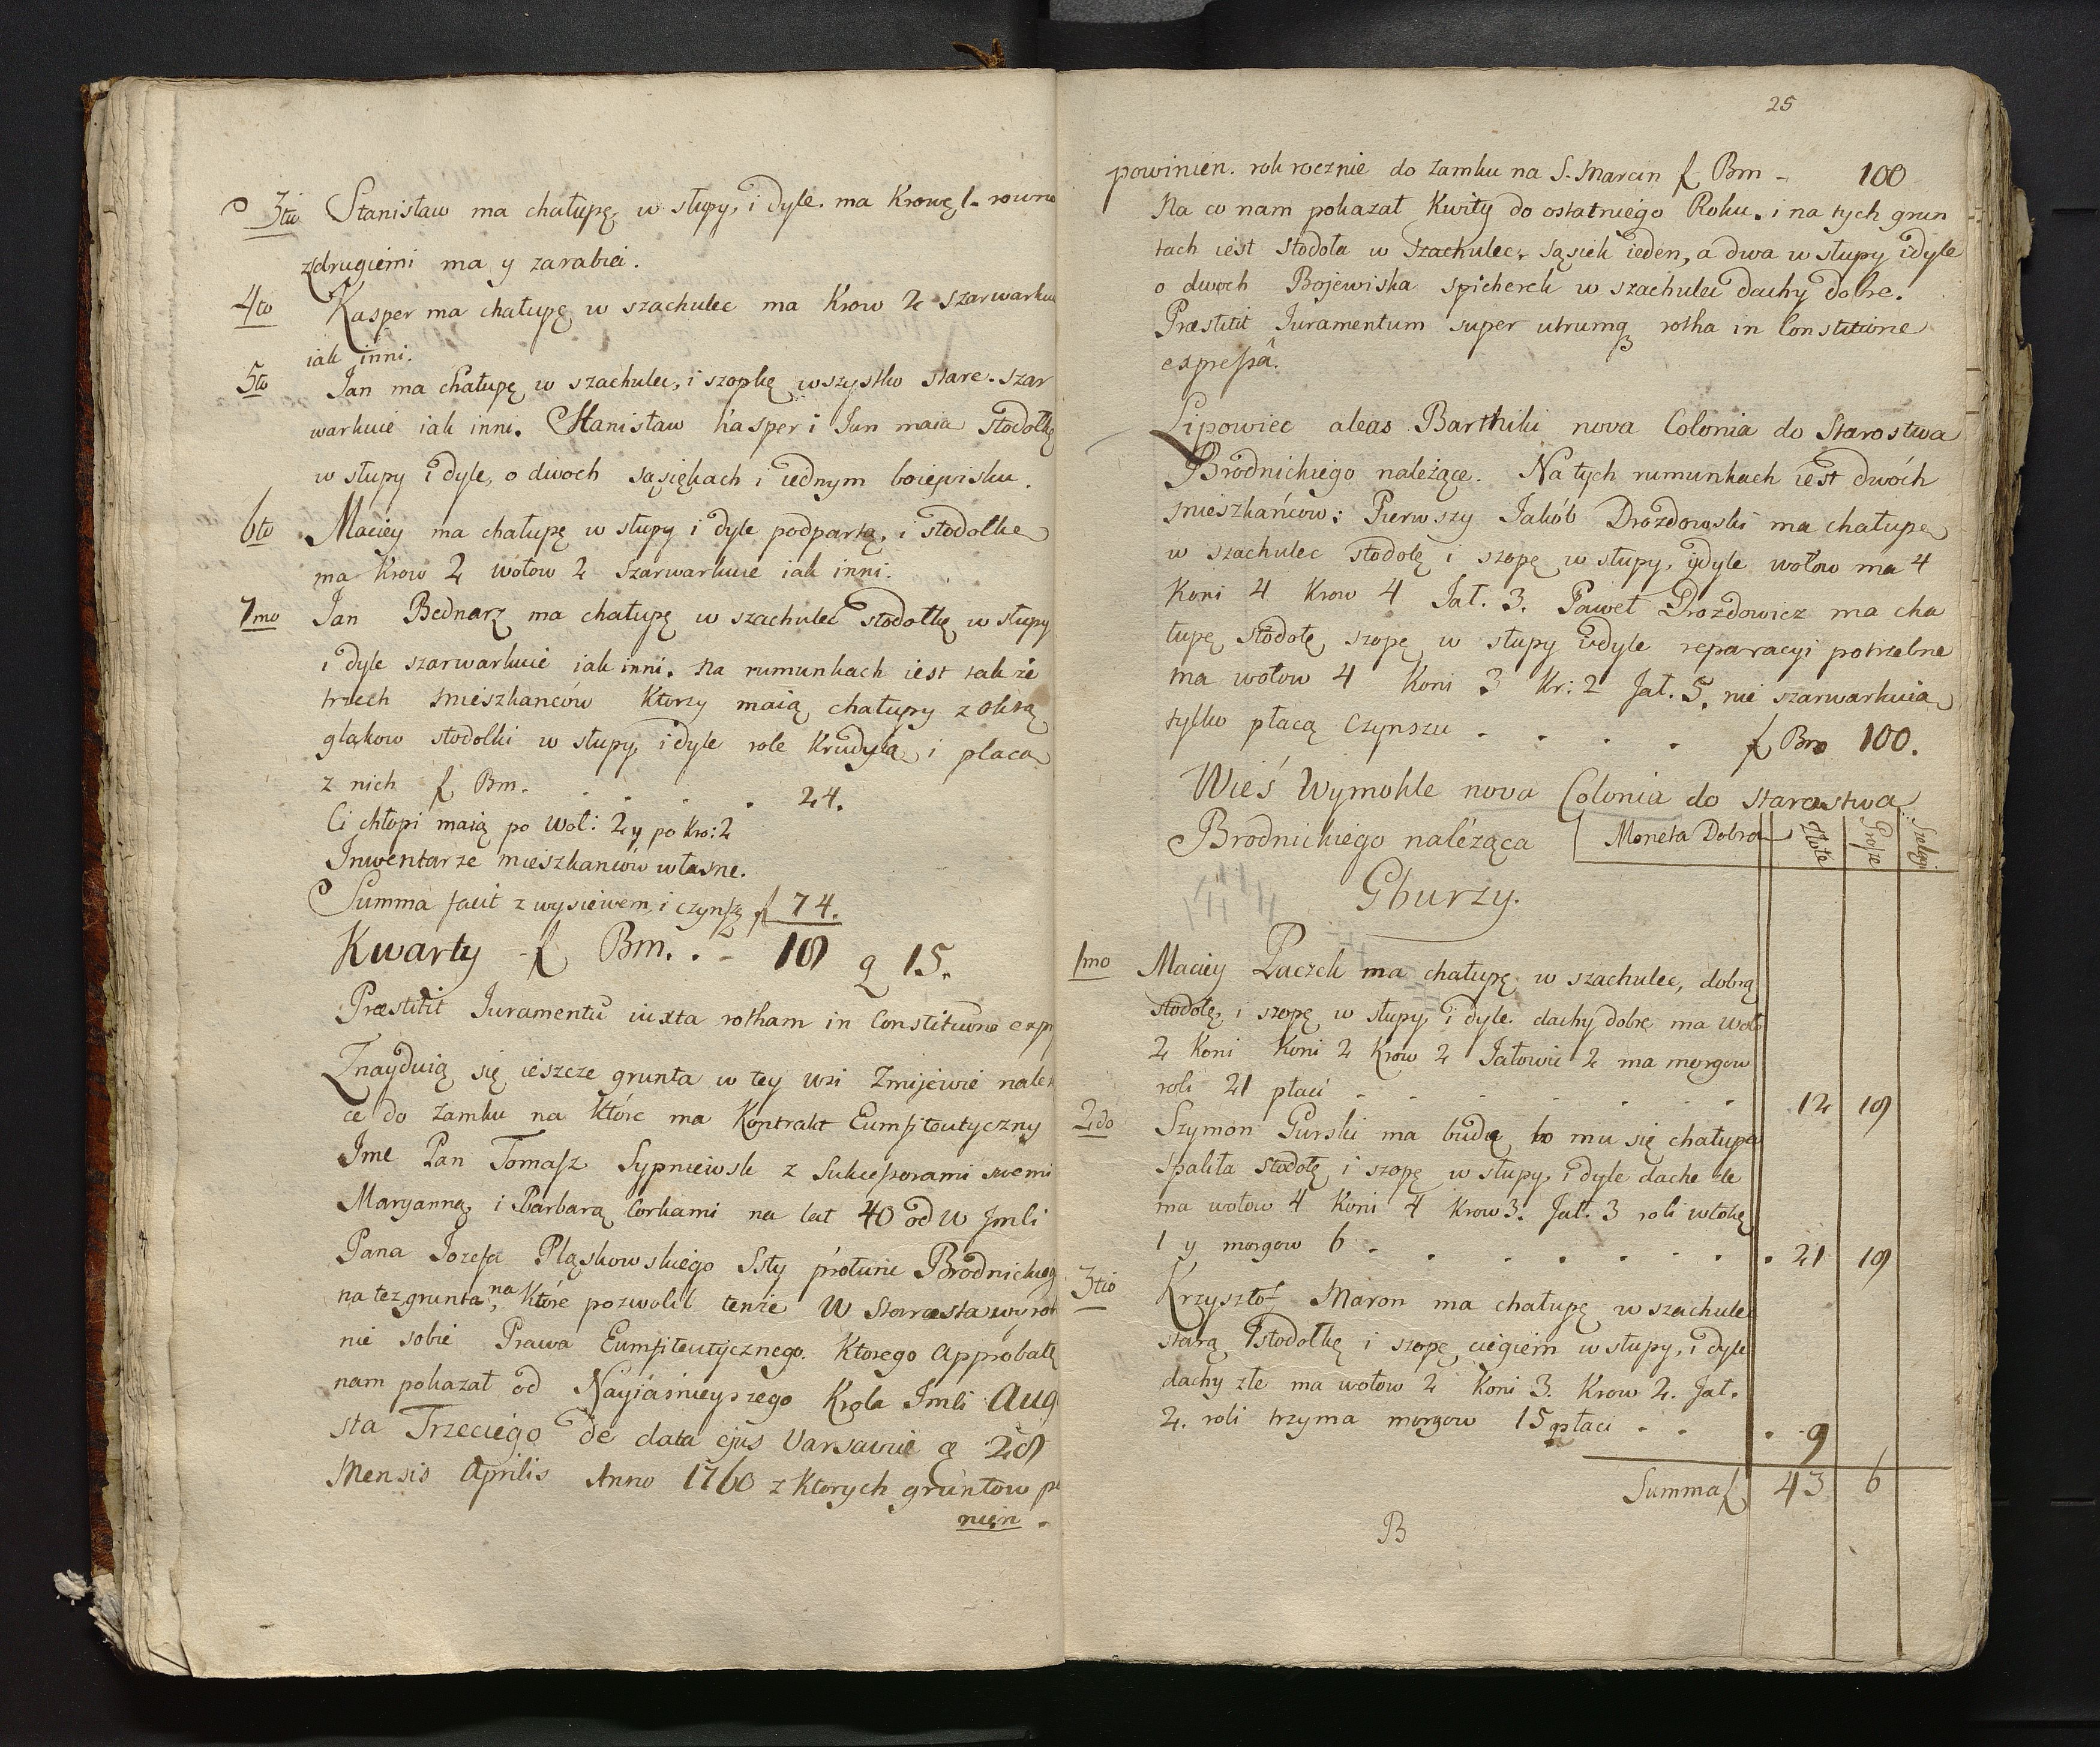 3tio Stanisław ma chałupę w słupy, i dyle. ma Krowę 1. rowno
z drugiemi ma y zarabia.
4to Kasper ma chałupę w szachulec ma Krow 2 szarwarkuie
iak inni.
5to Jan ma chałupę w szachulec, i szopkę wszystko stare. szar
warkuie iak inni. Stanisław Kasper i Jan maia stodołkę
w słupy i dyle, o dwoch sąsiękach i iednym boiewisku.
6to Maciey ma chałupę w słupy i dyle podpartą, i stodołke
ma Krow 2 wołow 2 szarwarkuie iak inni.
7mo Jan Bednarz ma chałupę w szachulec stodołkę w słupy
i dyle szarwarkuie iak inni. Na rumunkach iest takze
trzech mieszkanców Ktorzy maią chałupy z okrą
gląkow stodolki w słupy, i dyle role Krudylą i placa
z nich f Bm. . . . . 24.
Ci chłopi maią po Woł: 2 y po Kro: 2
Inwentarze mieszkanców własne.
Summa facit z wysiewem, i czynszę f 74.
Kwarty f Bm. . - 18 g 15.
Præstitit Juramentu iuxta rotham in Constitutione exp
Znayduią się ieszcze grunta w tey wsi Zmijewie należ
ce do zamku na Które ma Kontrakt Eumfiteutyczny
Jmc Pan Tomasz Sypniewsk z Sukcessorami swemi
Maryanną i Barbarą Corkami na lat 40 od W Jmci
Pana Jozefa Pląskowskiego Ssty protunc Brodnickieg
na tez grunta, na Które pozwolił tenże W Starosta wyrob
nie sobie Prawa Eumfiteutycznego. Ktorego Approbatę
nam pokazał od Nayiaśnieyszego Krola Jmci Aug
sta Trzeciego de data ejus Varsaviæ d 28
Mensis Aprilis Anno 1760 z Ktorych gruntow po
nien.
25
powinien. rok rocznie do Zamku na S. Marcin f Bm - 100
Na co nam pokazał Kwity do ostatniego Roku. i na tych grun
tach iest stodoła w szachulec, sąsiek ieden, a dwa w słupy i dyle
o dwoch Bojewiska spicherek w szachulec dachy dobre.
Præstitit Juramentum super utrumq rotha in Constitutione
expressâ.
Lipowiec aleas Barthiki nova Colonia do Starostwa
Brodnickiego należące. Na tych rumunkach iest dwóch
mieszkańców: Pierwszy Jakób Drozdowski ma chałupę
w szachulec stodołę i szopę w słupy, i dyle wołow ma 4
Koni 4 Krow 4 Jał. 3. Paweł Drozdowicz ma cha
łupę stodołę szopę w słupy i dyle reparacyi potrzebne
ma wołow 4 Koni 3 Kr: 2 Jał. 5. nie szarwarkuia
tylko płacą Czynszu . . . . f Bm 100.
Wieś Wymokle nova Colonia do starostwa
Brodnickiego naléżąca Moneta Dobra Złote Grosze Szelągi
Gburzy.
1mo Maciey Paczek ma chałupę w szachulec, dobrą
stodołę i szopę w słupy, i dyle. dachy dobre ma Woł
2 Koni Koni 2 Krow 2 Jałowic 2 ma morgow
roli 21 płaci . . . . . . 12 18
2do Szymon Gurski ma budę bo mu się chałupa
spaliła stodołę i szopę w słupy, i dyle dache złe
ma wołow 4 Koni 4 Krow 3. Jał. 3 roli włokę
1 y morgow 6 . . . . . . . 21 18
3tio Krzysztof Maron ma chałupę w szachulec
starą stodołkę i szopę ciegiem w słupy, i dyle
dachy złe ma wołow 2 Koni 3. Krow 2. Jał.
2. roli trzyma morgow 15 płaci . . . 9
Summa f 43 6
B